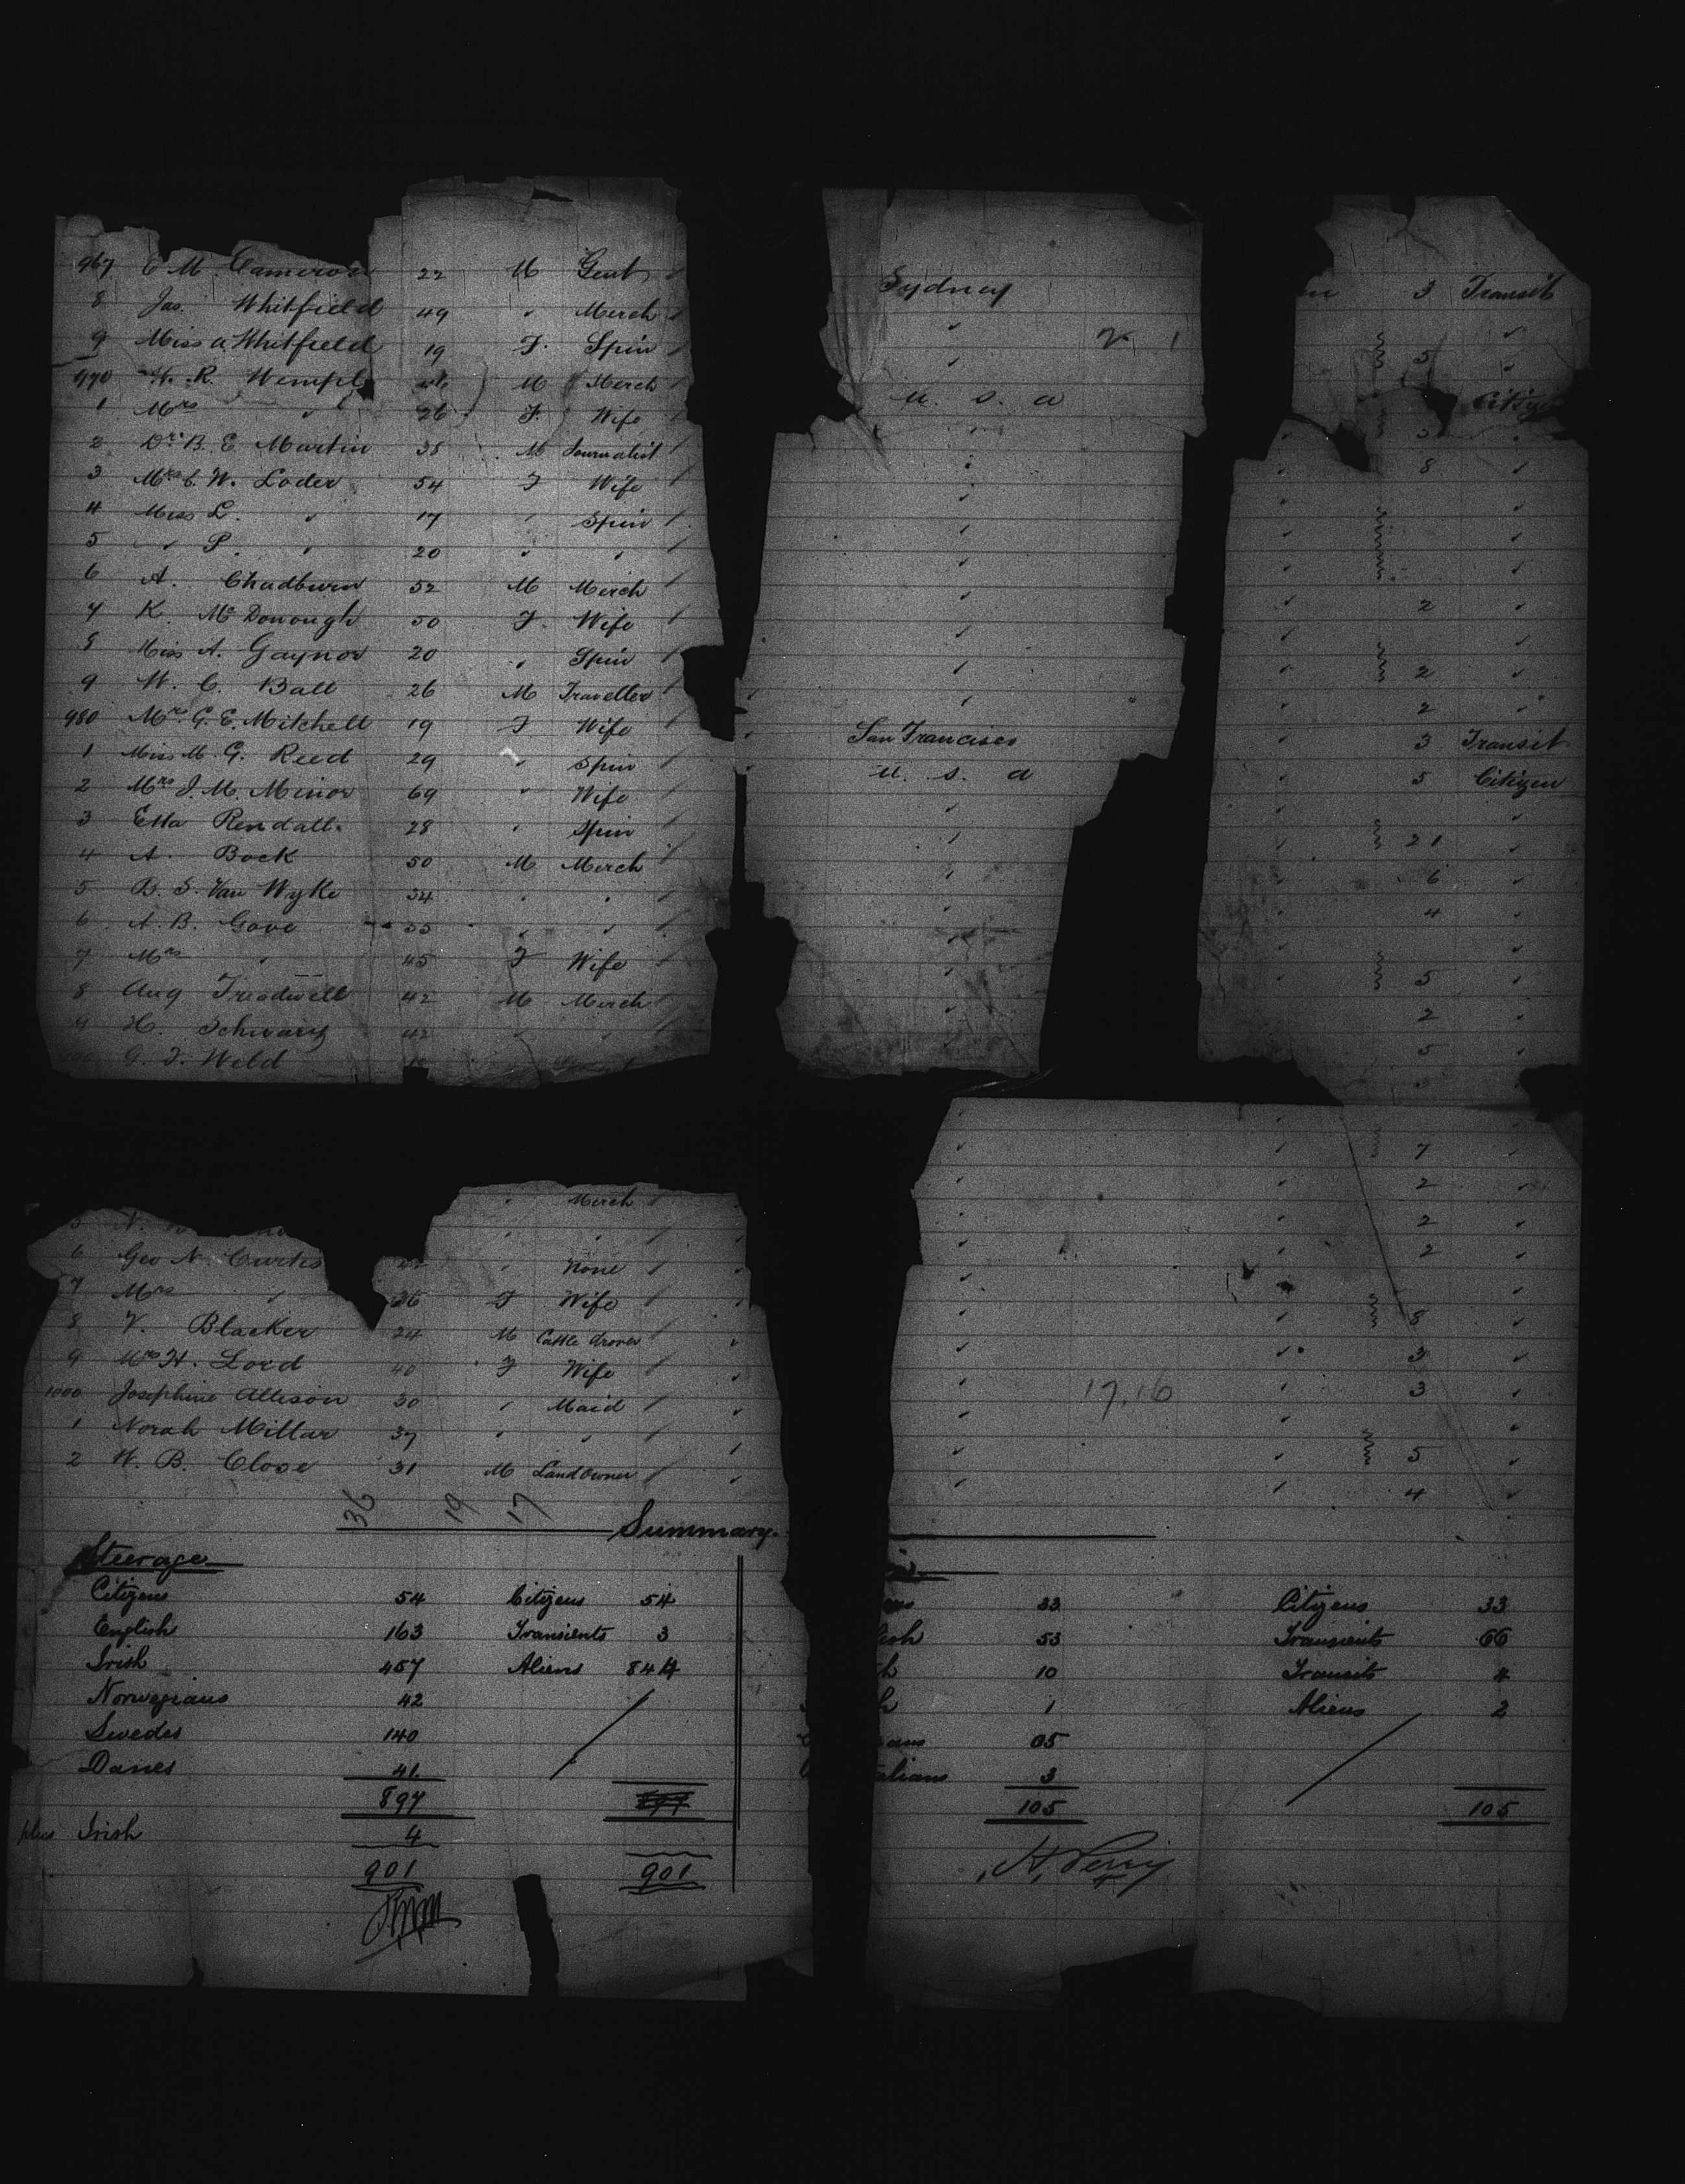 967 E M. Cameron 22 M Gent Sydney 3 Transit
8 Jas. Whitfield 49 " Merch " "
9 Miss A Whitfield 19 F. Spin " 5 "
970 H. R. Wemple M Merch U. S. A Citizen
1 Mrs " 26 F. Wife " 3 "
2 Dr. B. E Martin 38 M Journalist " " 8 "
3 Mrs C. W. Loder 54 F Wife " " "
4 Miss L. " 17 " Spin " " "
5 " P. " 20 " " " " "
6 A. Chadburn 52 M Merch " " 2 "
7 K. McDonough 50 F. Wife " " "
8 Miss A. Gaynor 20 " Spin " " 2 "
9 W. C. Ball 26 M Traveller " " 2 "
980 Mrs. G. E. Mitchell 19 F Wife San Francisco " 3 Transit
1 Miss M. G. Reed 29 " Spin U. S. A " 5 Citizen
2 Mrs J. M. Minor 69 " Wife " " "
3 Etta Rendall. 28 " Spin " " 21 "
4 A. Bock 50 M Merch " " 6 "
5 B. S. Van Wyke 34 " " " " 4 "
6 A. B. Gove 55 " " " " "
7 Mrs " 45 F Wife " " 5 "
8 Aug Treadwell 42 M Merch " " 2 "
9 H. Schwarz 42 " " 5 "
G. F. Weld
" " 7 "
" Merch " " 2 "
5 N. " " " " 2 "
6 Geo N. Curtis " None " " 2 "
7 Mrs " 36 F Wife " " "
8 V. Blacker 24 M Cattle drover " " 8 "
9 Mrs H. Lord 40 F Wife " " 3 "
1000 Josephine Allison 30 " Maid " 17,16 " 3 "
1 Norah Millar 37 " " " " "
2 W. B. Close 31 M Land Owner " " 5 "
" " 4 "
36 19 17
Summary.
Steerage
Citizens 54 Citizens 54 33 Citizens 33
English 163 Transients 3 53 Transients 66
Irish 457 Aliens 844 10 Transits 4
Norwegians 42 1 Aliens 2
Swedes 140 05
Danes 41 3
897 897 105 105
plus Irish 4
901 901
H. Perry